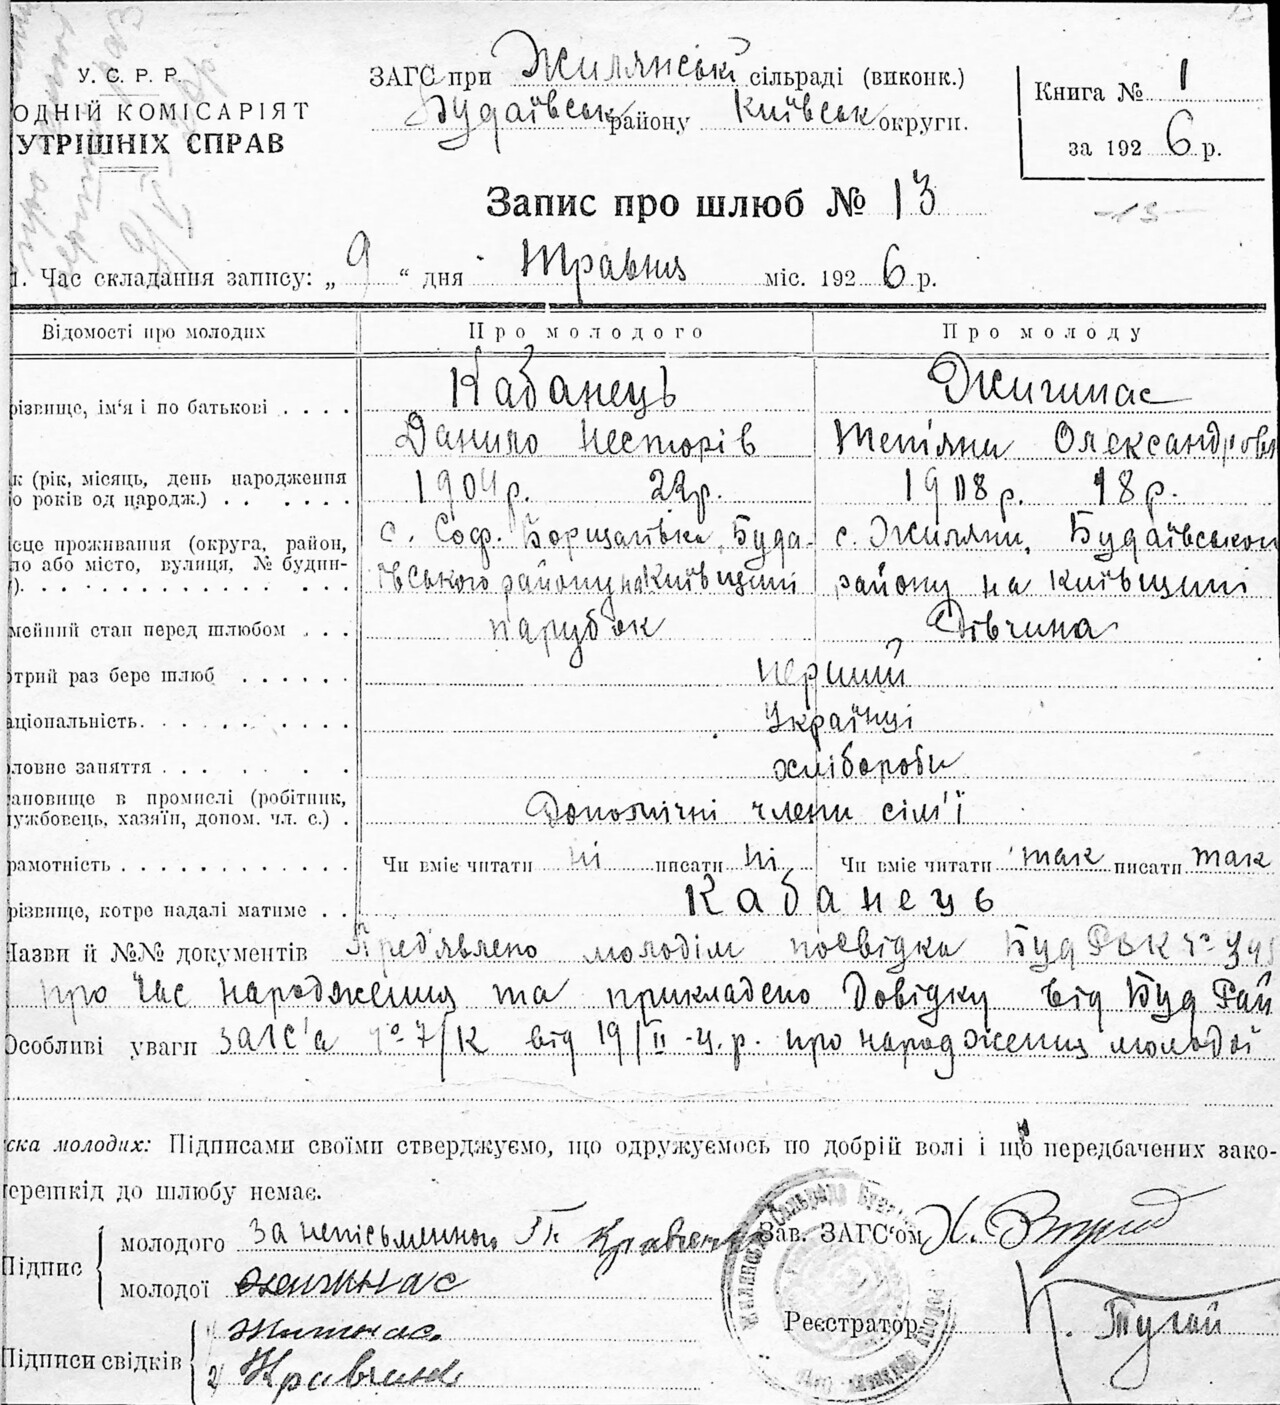 У. С. Р. Р.
ОДНІЙ КОМІСАРІЯТ
УТРІШНІХ СПРАВ
ЗАГС при Жилянській сільраді (виконк.)
Будаївськ району Київськ округи.
Книга № 1
за 1926 р.
Запис про шлюб № 13
-13-
1. Час складання запису: „ 9 “ дня Травня міс. 1926 р.
Відомості про молодих Про молодого Про молоду
різвище, ім‘я і по батькові . . . . Кабанець Джигинас
Данило Несторів Тетіяни Олександровн
к (рік, місяць, день народження
о років од народж.) . . . . . . 1904 р. 22 р. 1908 р. 18 р.
ісце проживання (округа, район, с. Соф. Борщагівка, Буда- с. Жиляни, Будаївського
ло або місто, вулиця, № будин- ївського району на Київщині району на Київщині
мейний стан перед шлюбом . . . парубок Дівчина
отрий раз бере шлюб . . . . . . перший
аціональність. . . . . . . . . Українці
ловне заняття . . . . . . . хлібороби
ановище в промислі (робітник,
ужбовець, хазяїн, допом. чл. с.) . Допомічні члени сім'ї
рамотність . . . . . . . . . . . Чи вміє читати ні писати ні Чи вміє читати так писати так
різвище, котре надалі матиме . . Кабанець
Назви й №№ документів Пред'явлено молодім посвідка Буд РВК №
про час народження та прикладено Довідку від Буд Рай
Особливі уваги ЗАГС'а № 7/К від 19/II -ц. р. про народження молодої
ска молодих: Підписами своїми стверджуємо, що одружуємось по добрій волі і що передбачених зако-
ерешкід до шлюбу немає.
Підпис молодого За неписьменного
молодої Жигинас
Зав. ЗАГС‘ом
Реєстратор К. Тугай
Підписи свідків 1)
2)